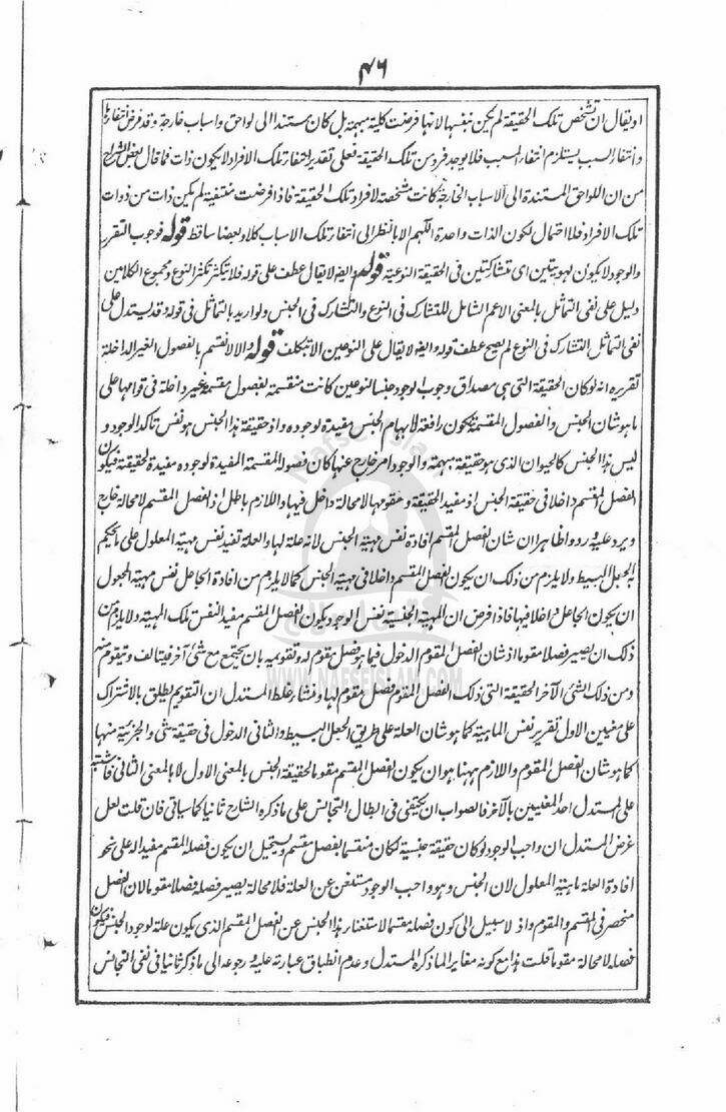 ۴۶
او يقال ان تشخص تلك الحقيقة لم يكن بنفسها لانها فرضت كلية مبهمة بل كان مستندا الى لواحق واسباب خارجة وقد فرض انتفاءها
وانتفاء السبب يستلزم انتفاء المسبب فلا يوجد فرد من تلك الحقيقة فعلى تقدير انتفاء تلك الافراد لا يكون ذات فما قال بعض الشراح
من ان اللواحق المستندة الى الاسباب الخارجة كانت مشخصة لافراد تلك الحقيقة فاذا فرضت منتفية لم يكن ذات من ذوات
تلك الافراد فلا احتمال لكون الذات واحدة اللهم الا بالنظر الى انتفاء تلك الاسباب كلا وبعضا ساقط قوله فوجوب التقرر
والوجود لا يكون لهويتين اى متشاركتين فى الحقيقة النوعية قوله وايضا لا يقال عطف على قوله فلا يتكثر تكثر النوع ومجموع الكلامين
دليل على نفى التماثل بالمعنى الاعم الشامل للتشارك فى النوع والتشارك فى الجنس ولو اريد بالتماثل فى قوله وقد يستدل على
نفى التماثل التشارك فى النوع لم يصح عطف قوله وايضا لا يقال على النوعين الا بتكلف قوله والا لانقسم بالفصول الغير الداخلة
تقريره انه لو كان الحقيقة التى هى مصداق وجوب الوجود جنسا لنوعين كانت منقسمة بفصول مقسمة غير داخلة فى قوامها على
ما هو شان الجنس والفصول المقسمة تكون رافعة لابهام الجنس مفيدة لوجوده واذ حقيقة هذا الجنس هو نفس تاكد الوجود و
ليس هذا الجنس كالحيوان الذى هو حقيقة مبهمة والوجود امر خارج عنها كان فصوله المقسمة المفيدة لوجوده مفيدة لحقيقته فيكون
الفصل المقسم داخلا فى حقيقة الجنس اذ مفيد الحقيقة ومقومها لا محالة داخل فيها واللازم باطل اذ الفصل المقسم لا محالة خارج
ويرد عليه ورودا ظاهرا ان شان الفصل المقسم افادة نفس مهية الجنس لانه علة لها والعلة تفيد نفس مهية المعلول على ما يحكم
به الجعل البسيط ولا يلزم من ذلك ان يكون الفصل المقسم داخلا فى مهية الجنس كما لا يلزم من افادة الجاعل نفس مهية المجعول
ان يكون الجاعل داخلا فيها فاذا فرض ان المهية الجنسية نفس الوجود يكون الفصل المقسم مفيد النفس تلك المهية ولا يلزم من
ذلك ان يصير فصلا مقوما اذ شان الفصل المقوم الدخول فيما هو فصل مقوم له وتقويمه بان يجتمع مع شئ آخر فيتالف ويتقوم منه
ومن ذلك الشئ الآخر الحقيقة التى ذلك الفصل المقوم فصل مقوم لها ومنشأ غلط المستدل ان التقويم يطلق بالاشتراك
على معنيين الاول تقرير نفس الماهية كما هو شان العلة على طريق الجعل البسيط والثانى الدخول فى حقيقة شئ والجزئية منها
كما هو شان الفصل المقوم واللازم ههنا هو ان يكون الفصل المقسم مقوما لحقيقة الجنس بالمعنى الاول لا بالمعنى الثانى فاشتبه
على المستدل احد المعنيين بالآخر فالصواب ان يكتفى فى ابطال التجانس على ما ذكره الشارح ثانيا كما سياتى فان قلت لعل
غرض المستدل ان واجب الوجود لو كان حقيقة جنسية لكان منقسما بفصل مقسم ويستحيل ان يكون فصله المقسم مفيدا له على نحو
افادة العلة ماهية المعلول لان الجنس وهو واجب الوجود مستغن عن العلة فلا محالة يصير فصله فصلا مقوما لان الفصل
منحصر فى المقسم والمقوم واذ لا سبيل الى كون فصله مقسما لاستغناء هذا الجنس عن الفصل المقسم الذى يكون علة لوجود الجنس فيكون
فصله لا محالة مقوما قلت هذا مع كونه مغايرا لما ذكره المستدل وعدم انطباق عبارته عليه رجوع الى ما ذكر ثانيا فى نفى التجانس